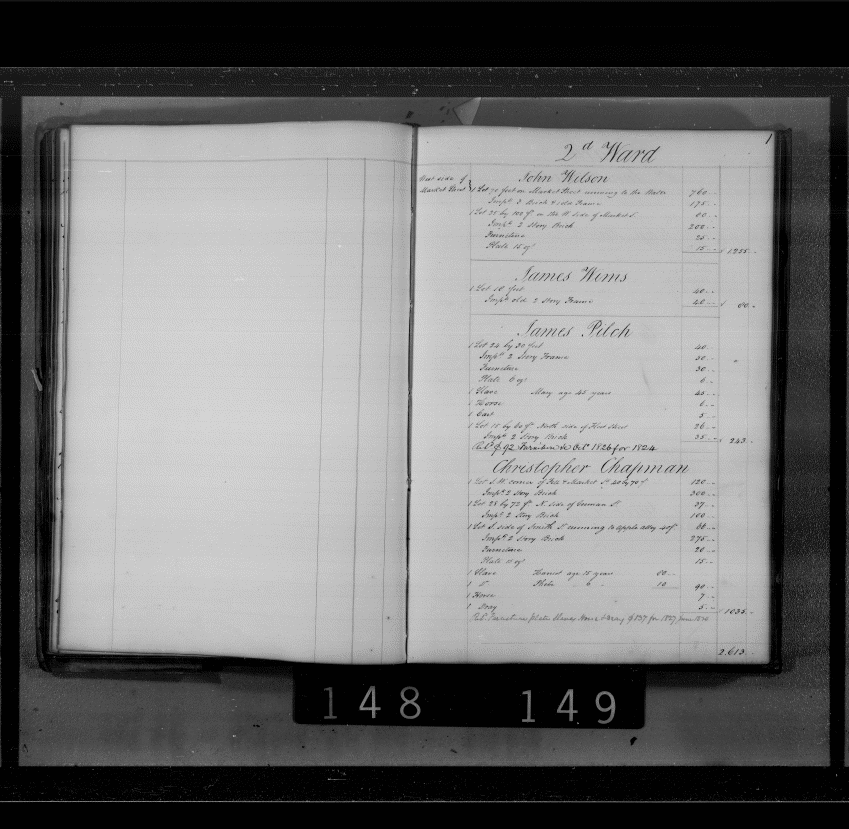 1
2d Ward
West side of Market Street
John Wilson
1 Lot 70 feet on Market Street running to the Water 760
Impts 3 Brick & side Frame 175
1 Lot 25 by 100 ft on the W. side of Market S. 80
Impts 2 Story Brick 200
Furniture 25
Plate 15 oz 15 $ 1255
James Wims
1 Lot 16 feet 40
Impts old 2 Story Frame 40 $ 80
James Pilch
1 Lot 24 by 30 feet 40
Impts 2 Story Frame 50
Furniture 30
Plate 6 oz 6
1 Slave Mary age 45 years 45
1 Horse 6
1 Cart 5
1 Lot 15 by 60 ft North side of Street 26
Impts 2 Story Brick 35 $ 243
$92 Furniture &c Octr 1826 for 1824
Christopher Chapman
1 Lot S.W. corner of & Market St 40 by 70 f 120
Impts 2 Story Brick 300
1 Lot 28 by 72 ft N. side of German St 37
Impts 2 Story Brick 100
1 Lot S. side of Smith St running to Apple alley 40f 66
Impts 2 Story Brick 275
Furniture 20
Plate 15 oz 15
1 Slave Harriet age 15 years 80
1 Do 6 10 90
1 Horse 7
1 Dray 5 $ 1035
Furniture Plate Slaves Horse & Dray $137 for 1827 June
2.613
148 149